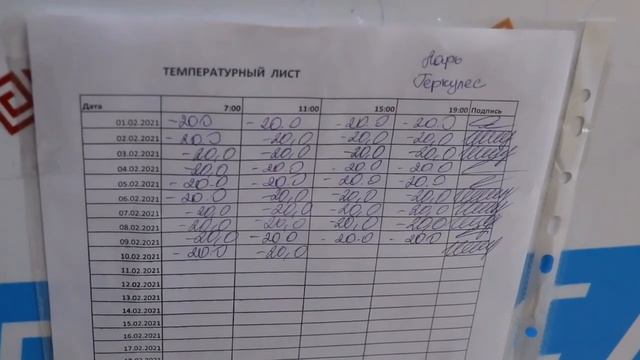 Ларь
Геркулес
ТЕМПЕРАТУРНЫЙ ЛИСТ
Дата 7:00 11:00 15:00 19:00 Подпись
01.02.2021 -20.0 -20.0 -20.0 -20.0
02.02.2021 -20.0 -20,0 -20,0 -20,0
03.02.2021 -20,0 -20,0 -20,0 -20,0
04.02.2021 -20.0 -20.0 -20.0 -20.0
05.02.2021 -20.0 -20.0 -20.0 -20.0
06.02.2021 -20.0 -20,0 -20,0 -20,0
07.02.2021 -20,0 -20,0 -20,0 -20,0
08.02.2021 -20,0 -20,0 -20,0 -20,0
09.02.2021 -20,0 -20.0 -20.0 -20.0
10.02.2021 -20.0 -20,0
11.02.2021
12.02.2021
13.02.2021
14.02.2021
15.02.2021
16.02.2021
17.02.2021